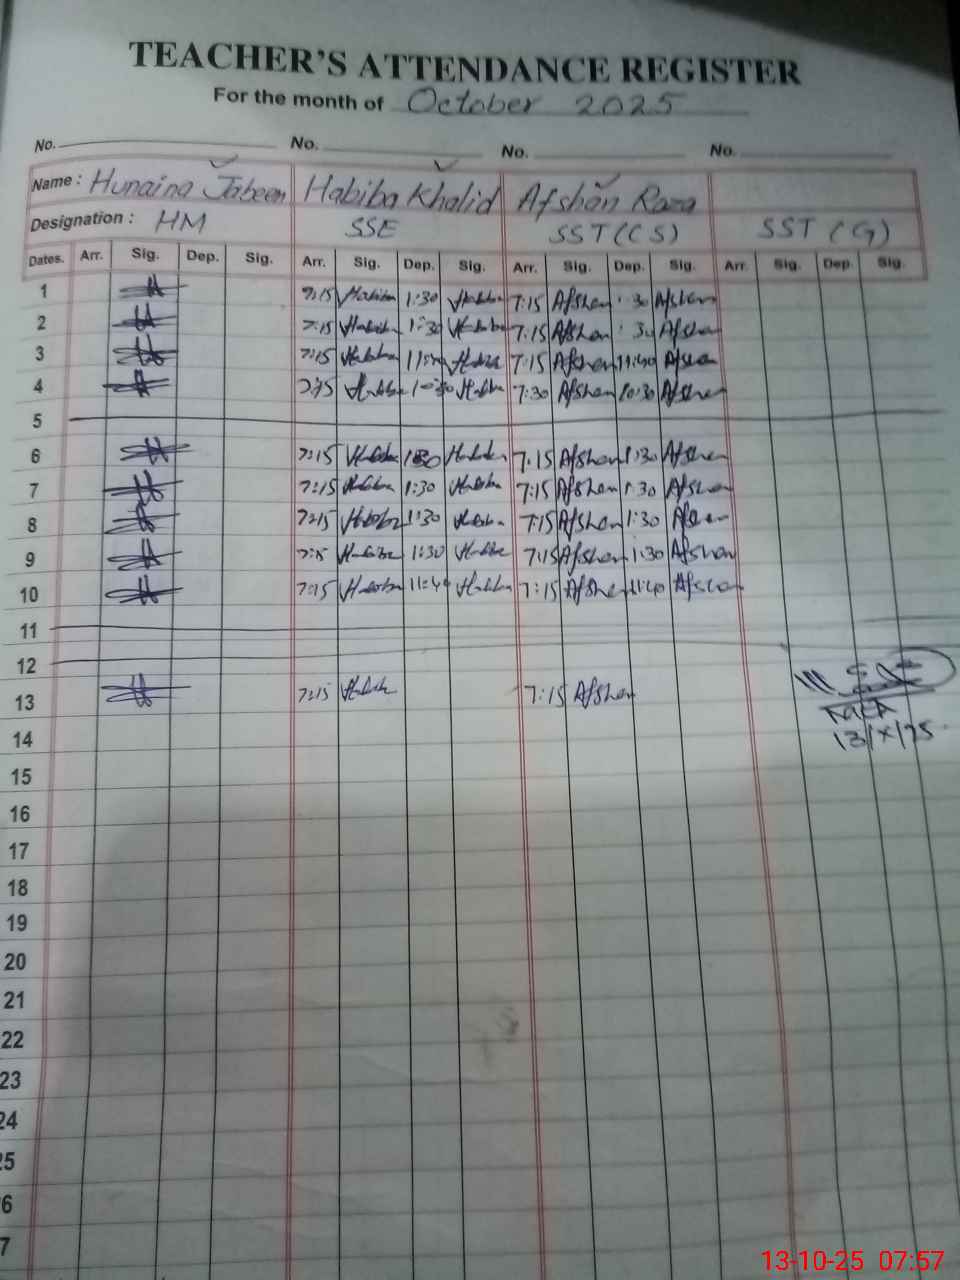 TEACHER'S ATTENDANCE REGISTER
For the month of October 2025
No. No. No. No.
Name : Hunaina Jabeen Habiba Khalid Afshan Raza
Designation : HM SSE SST (CS) SST (G)
Dates. Arr. Sig. Dep. Sig. Arr. Sig. Dep. Sig. Arr. Sig. Dep. Sig. Arr. Sig. Dep. Sig.
1 7:15 Habiba 1:30 Habiba 7:15 Afshan 1:30 Afshan
2 7:15 Habiba 1:30 Habiba 7:15 Afshan 1:30 Afshan
3 7:15 Habiba Habiba 7:15 Afshan 11:40 Afshan
4 Habiba 10:30 Habiba 7:30 Afshan 10:30 Afshan
5
6 7:15 Habiba 1:30 Habiba 7:15 Afshan 1:30 Afshan
7 7:15 Habiba 1:30 Habiba 7:15 Afshan 1:30 Afshan
8 7:15 Habiba 1:30 Habiba 7:15 Afshan 1:30 Afshan
9 7:15 Habiba 1:30 Habiba 7:15 Afshan 1:30 Afshan
10 7:15 Habiba 11:40 Habiba 7:15 Afshan 11:40 Afshan
11
12
13 7:15 Habiba 7:15 Afshan
MEA
13/X/25
14
15
16
17
18
19
20
21
22
23
24
25
6
7
13-10-25 07:57